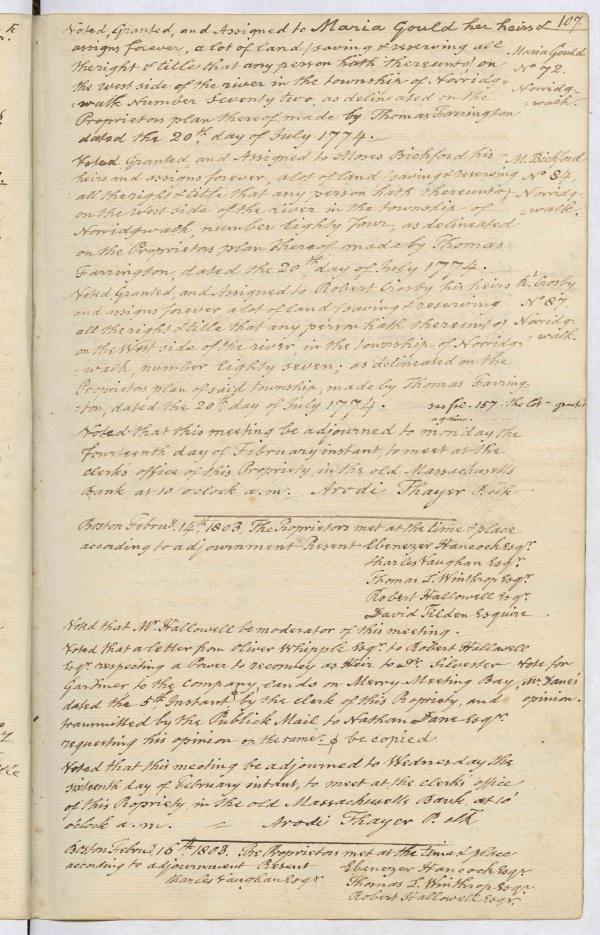 107
Voted, Granted, and Assigned to Maria Gould her heirs &
assigns forever, a lot of land (saving & reserving all
the right & title that any person hath thereunto) on
the west side of the river in the township of Norridg=
=walk Number Seventy two, as delineated on the
Proprietors plan thereof made by Thomas Farrington
dated the 20th. day of July 1774.
Maria Gould
No 72.
Norridg=
=walk.
Voted, Granted, and Assigned to Moses Bickford his
heirs and assigns forever, a lot of land (saving & reserving
all the right & title that any person hath thereunto)
on the West side of the river in the township of
Norridgwalk, number Eighty Four, as delineated
on the Proprietors plan thereof made by Thomas
Farrington, dated the 20th day of July 1774.
M. Bickford
No 84,
Norridg=
=walk.
Voted, Granted, and Assigned to Robert Crosby his heirs
and assigns forever a lot of land (saving & reserving
all the right & title that any person hath thereunto)
on the West side of the river, in the township of Norridg=
=walk, number Eighty seven; as delineated on the
Proprietors plan of said township, made by Thomas Farring=
=ton, dated the 20th. day of July 1774.
Rt. Crosby
No 87.
Norridg=
=walk.
see fol. 157. the Lot granted
again.
Voted that this meeting be adjourned to monday the
fourteenth day of February instant, to meet at the
clerks office of this Propriety, in the old Massachusetts
Bank, at 10 o'clock a.m. Arodi Thayer
Boston Februy. 14th. 1803. The Proprietors met at the time & place
according to adjournment Present Ebenezer Hancock Esqr.
Charles Vaughan Esqr.
Thomas L. Winthrop Esqr.
Robert Hallowell Esqr.
David Tilden Esquire
Voted that Mr. Hallowell be moderator of this meeting.
Voted that a letter from Oliver Whipple Esqr. to Robert Hallowell
Esqr. respecting a Power to reconvey as Heir to Dr. Silvester
Gardiner to the Company, Lands on Merry Meeting Bay,
dated the 5th. Instant, by the clerk of this Propriety, and
transmitted by the Publick Mail to Nathan Dane Esqr.
requesting his opinion on the same. & be copied
Vote for
Mr. Dane's
opinion.
Voted that this meeting be adjourned to Wednesday the
sixteenth day of February instant, to meet at the clerks office
of this Propriety, in the old Massachusetts Bank, at 10
o'clock a.m. Arodi Thayer
Boston Februy. 16th. 1803. The Proprietors met at the time & place
according to adjournment Present
Ebenezer Hancock Esqr.
Charles Vaughan Esqr
Thomas L. Winthrop Esqr.
Robert Hallowell Esqr.